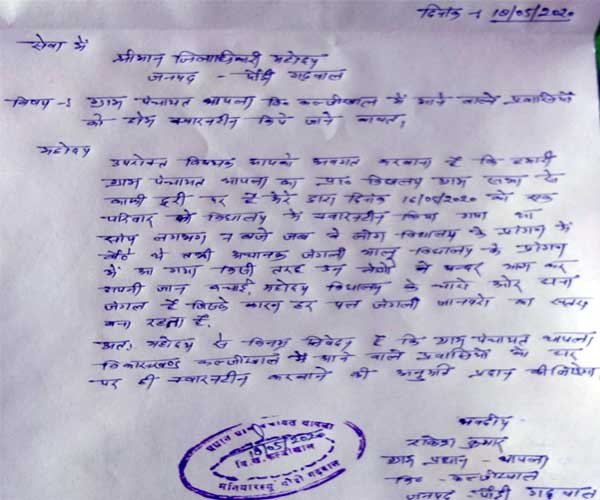 दिनांक : 18/05/2020
सेवा में
श्रीमान जिलाधिकारी महोदय
जनपद - पौड़ी गढ़वाल
विषय -: ग्राम पंचायत थापला वि० कल्जीखाल में आने वाले प्रवासियों
को होम क्वारनटीन किये जाने बावत,
महोदय
उपरोक्त विषयक आपको अवगत करवाना है कि हमारी
ग्राम पंचायत थापला का प्रा० विद्यालय ग्राम सभा से
काफी दूरी पर है मेरे द्वारा दिनांक 16/05/2020 को एक
परिवार को विद्यालय के क्वारनटीन किया गया था
लगभग बजे जब वे लोग विद्यालय के प्रांगन में
बैठे थे तभी अचानक जंगली भालू विद्यालय के प्रांगन
में आ गया किसी तरह उन लोगों ने भाग कर
अपनी जान बचाई, महोदय विद्यालय के चारो ओर घना
जंगल है जिसके कारन हर पल जंगली जानवरो का खतरा
बना रहता है.
अतः महोदय से विनम्र निवेदन है कि ग्राम पंचायत थापला
विकासखण्ड कल्जीखाल में आने वाले प्रवासियों को घर
पर ही क्वारनटीन करवाने की अनुमति प्रदान कीजिएगा
भवदीय
राकेश कुमार
ग्राम प्रधान - थापला
वि० - कल्जीखाल
जनपद - पौड़ी गढ़वाल
18/05/2020
वि. ख. कल्जीखाल
मनियारस्यूं पौड़ी गढ़वाल